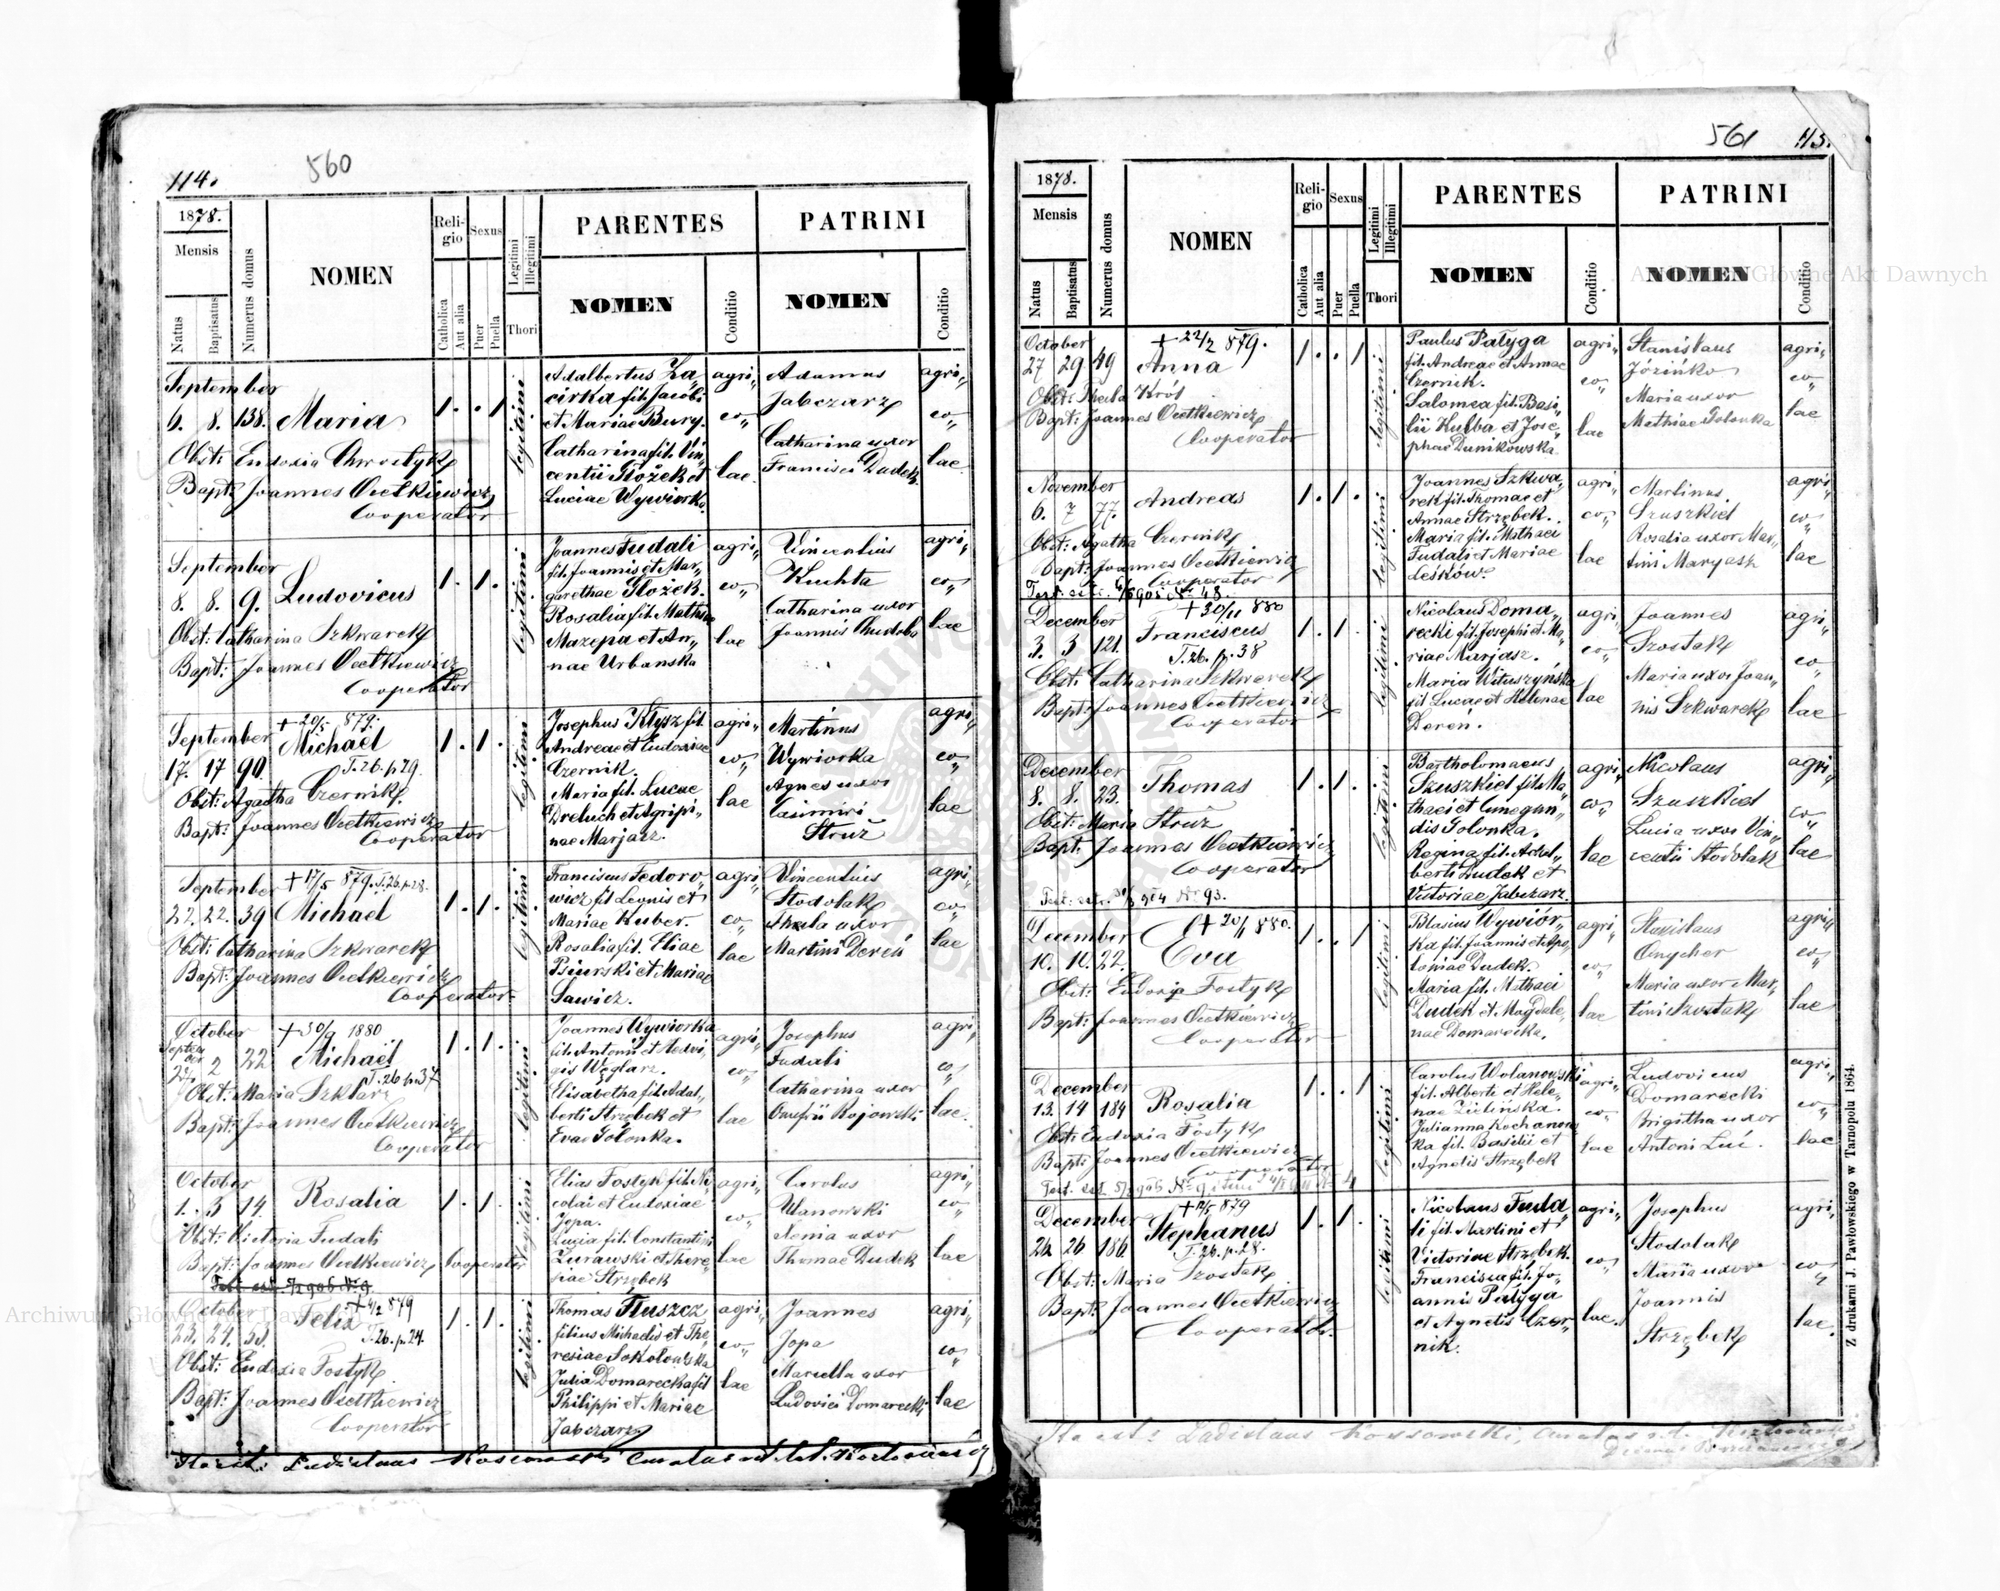 114.
560
1878.
Mensis
Natus
Baptisatus
Numerus domus
NOMEN
Reli-
gio
Catholica
Aut alia
Sexus
Puer
Puella
Legitimi
Illegitimi
Thori
PARENTES
NOMEN
Conditio
PATRINI
NOMEN
Conditio
September
6. 8. 138. Maria
1. . 1
legitimi
Obst: Eudoxia Chrostyk
Bapt: Joannes Ocetkiewicz
Cooperator
Adalbertus
cirka fil. Jacobi
et Mariae Bury.
Catharina fil. Vin„
centii Tłożek et
Luciae Wywiorka.
agri„
co„
lae
Adamus
Jabczarz
Catharina uxor
Francisci Dudek
agri„
co„
lae.
September
8. 8. 9. Ludovicus
1. 1.
legitimi
Obst: Catharina Szkwarek
Bapt: Joannes Ocetkiewicz
Cooperator
Joannes Fudali
fil. Joannis et Mar„
garethae Tłożek.
Rosalia fil. Mathiae
Mazepa et An„
nae Urbanska
agri„
co„
lae
Vincentius
Kuchta
Catharina uxor
Joannis Chudoba
agri„
co„
lae
September + 20/5 879.
Michael
17. 17 90. T. 26. p 29.
1. 1.
legitimi
Obst: Agatha Czernik.
Bapt: Joannes Ocetkiewicz
Cooperator
Josephus Kłysz fil.
Andreae et Eudoxiae
Czernik.
Maria fil. Lucae
Dreluch et Agripi„
nae Marjasz.
agri„
co„
lae
Martinus
Wywiorka
Agnes uxor
Casimiri
Struż
agri„
co„
lae
September + 17/5 879. T. 26. p. 28.
22. 22. 39 Michael
1. 1.
legitimi
Obst: Catharina Szkwarek
Bapt: Joannes Ocetkiewicz
Cooperator
Franciscus Fedoro„
wicz fil. Leonis et
Mariae Kuber.
Rosalia fil. Eliae
Psiurski et Mariae
Sawicz.
agri„
co„
lae
Vincentius
Stodolak
Thecla uxor
Martini Dereń
agri„
co„
lae
October + 30/7 1880
2 22 Michaël
T. 26 p. 37
1. 1.
legitimi
Obst: Maria Szklarz
Bapt: Joannes Ocetkiewicz
Cooperator
Joannes Wywiorka
fil. Antonii et Hedvi„
gis Węglarz.
Elisabetha fil. Adal„
berti Strzębek et
Evae Golonka.
agri„
co„
lae
Josephus
Fudali
Catharina uxor
Onufrii Rojowski
agri„
co„
lae.
October
1. 3 14. Rosalia
1. 1.
legitimi
Obst: Victoria Fudali
Bapt: Joannes Ocetkiewicz Cooperator
Elias Fostyk fil. Ni„
colai et Eudoxiae
Jopa.
Luzia fil. Constantini
Zurawski et There„
siae Strzębek
agri„
co„
lae
Carolus
Ulanowski
Xenia uxor
Thomae Dudek
agri„
co„
lae
October
Felix + 4/2 879
T. 26. p. 24.
1. 1.
legitimi
Obst: Eudoxia Fostyk.
Bapt: Joannes Ocetkiewicz
Cooperator
Thomas Tłuszcz
filius Michaelis et The„
resiae Sokolowska
Julia Domarecka fil
Philippi et Mariae
Jabczarz
agri„
co„
lae
Joannes
Jopa
Marcella uxor
Ludovici Domarecki
agri„
co„
lae
561
115.
1878.
Mensis
Natus
Baptisatus
Numerus domus
NOMEN
Reli-
gio
Catholica
Aut alia
Sexus
Puer
Puella
Legitimi
Illegitimi
Thori
PARENTES
NOMEN
Conditio
PATRINI
NOMEN
Conditio
October + 22/2 879.
27 29 49 Anna
1. . 1
legitimi
Obst: Thecla Król
Bapt: Joannes Ocetkiewicz
Cooperator
Paulus Pałyga
fil. Andreae et Annae
Czernik.
Salomea fil. Basi„
lii Kulba et Jose„
phae Dunikowska.
agri„
co„
lae
Stanislaus
Józinko
Maria uxor
Mathiae Golonka
agri„
co„
lae
November
6. 7 77. Andreas
1. 1.
legitimi
Obst: Agatha Czernik
Bapt: Joannes Ocetkiewicz
Cooperator
Joannes Szkwa„
rek fil. Thomae et
Annae Strzębek.
Maria fil. Mathaei
Fudali et Mariae
Leśków.
agri„
co„
lae
Martinus
Szuszkiel
Rosalia uxor Mar„
tini Maryasz
agri„
co„
lae
December + 30/11 880
3. 3 121. Franciscus
T. 26. p. 38
1. 1.
legitimi
Obst: Catharina Szkwarek
Bapt: Joannes Ocetkiewicz
Cooperator
Nicolaus Doma„
recki fil. Josephi et Ma„
riae Marjasz.
Maria Witaszyńska
fil Lucae et Helenae
Dereń.
agri„
co„
lae
Joannes
Szostak
Maria uxor Joan„
nis Szkwarek
agri„
co„
lae
December
8. 8. 23. Thomas
1. 1.
legitimi
Obst: Maria Struz
Bapt: Joannes Ocetkiewicz
Cooperator
Bartholomaeus
Szuszkiel fil. Ma„
thaei et Cunegun„
dis Golonka.
Regina fil. Adal„
berti Dudek et
Victoriae Jabczarz.
agri„
co„
lae
Nicolaus
Szuszkiel
Lucia uxor Vin„
centii Stodolak
agri„
co„
lae
December + 20/1 880.
10. 10. 22. Eva
1. . 1
legitimi
Obst: Eudoxia Fostyk
Bapt: Joannes Ocetkiewicz
Cooperator
Blasius Wywiór„
ka fil. Joannis et Apo„
loniae Dudek.
Maria fil. Mathaei
Dudek et Magdale„
nae Domarecka.
agri„
co„
lae
Stanislaus
Onycher
Maria uxor Mar„
tini Szostak
agri„
co„
lae
December
13. 14 184 Rosalia
1. . 1
legitimi
Obst: Eudoxia Fostyk
Bapt: Joannes Ocetkiewicz
Cooperator
Carolus Wolanowski
fil. Alberti et Hele„
nae Zielińska.
Julianna Kochanow
ka fil. Basilii et
Agnetis Strzębek
agri„
co„
lae
Ludovicus
Domarecki
Brigitha uxor
Antoni Luc
agri„
co„
lae
December + 12/5 879
26 26 186. Stephanus
T. 26. p. 28.
1. 1.
legitimi
Obst: Maria Szostak
Bapt: Joannes Ocetkiewicz
Cooperator.
Nicolaus Fuda„
li fil. Martini et
Victoriae Strzębek.
Francisca fil. Jo„
annis Pałyga
et Agnetis Czer„
nik.
agri„
co„
lae.
Josephus
Stodolak
Maria uxor
Joannis
Strzębek
agri„
co„
lae.
Z drukarni J. Pawłowskiego w Tarnopolu 1864.
Archiwum Główne Akt Dawnych
Archiwum Główne Akt Dawnych